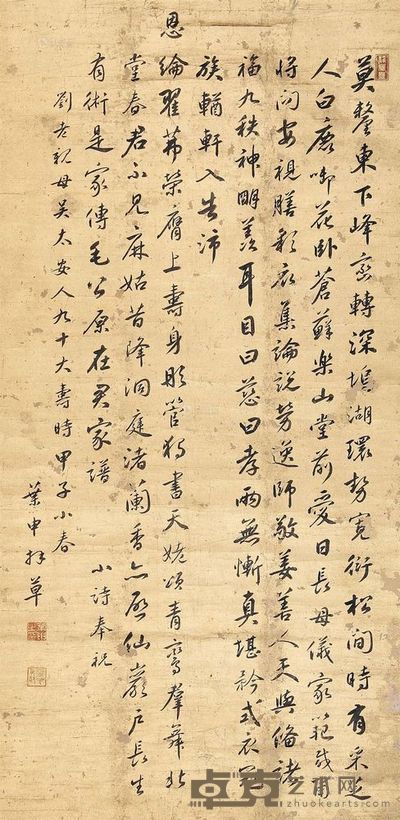 莫釐東下峰巒轉深塢湖環勢寬衍松間時有采芝
人白鹿啣花卧蒼蘚樂山堂前愛日長母儀家範式甫
將問安視膳彩衣集論說勞逸師敬姜善人天與備諸
福九秩神明羨耳目曰慈曰孝兩無慚真堪矜式衣冠
族輶軒入告沛
恩綸翟茀榮膺上壽身彤管猶書天姥頌青鸞羣舞北
堂春君不見麻姑昔降洞庭渚蘭香亦啟仙巖戶長生
有術是家傳毛公原在君家譜
小詩奉祝
劉老親母吳太安人九十大壽時甲子小春
葉申拜草
卓克艺术网
zhuokearts.com